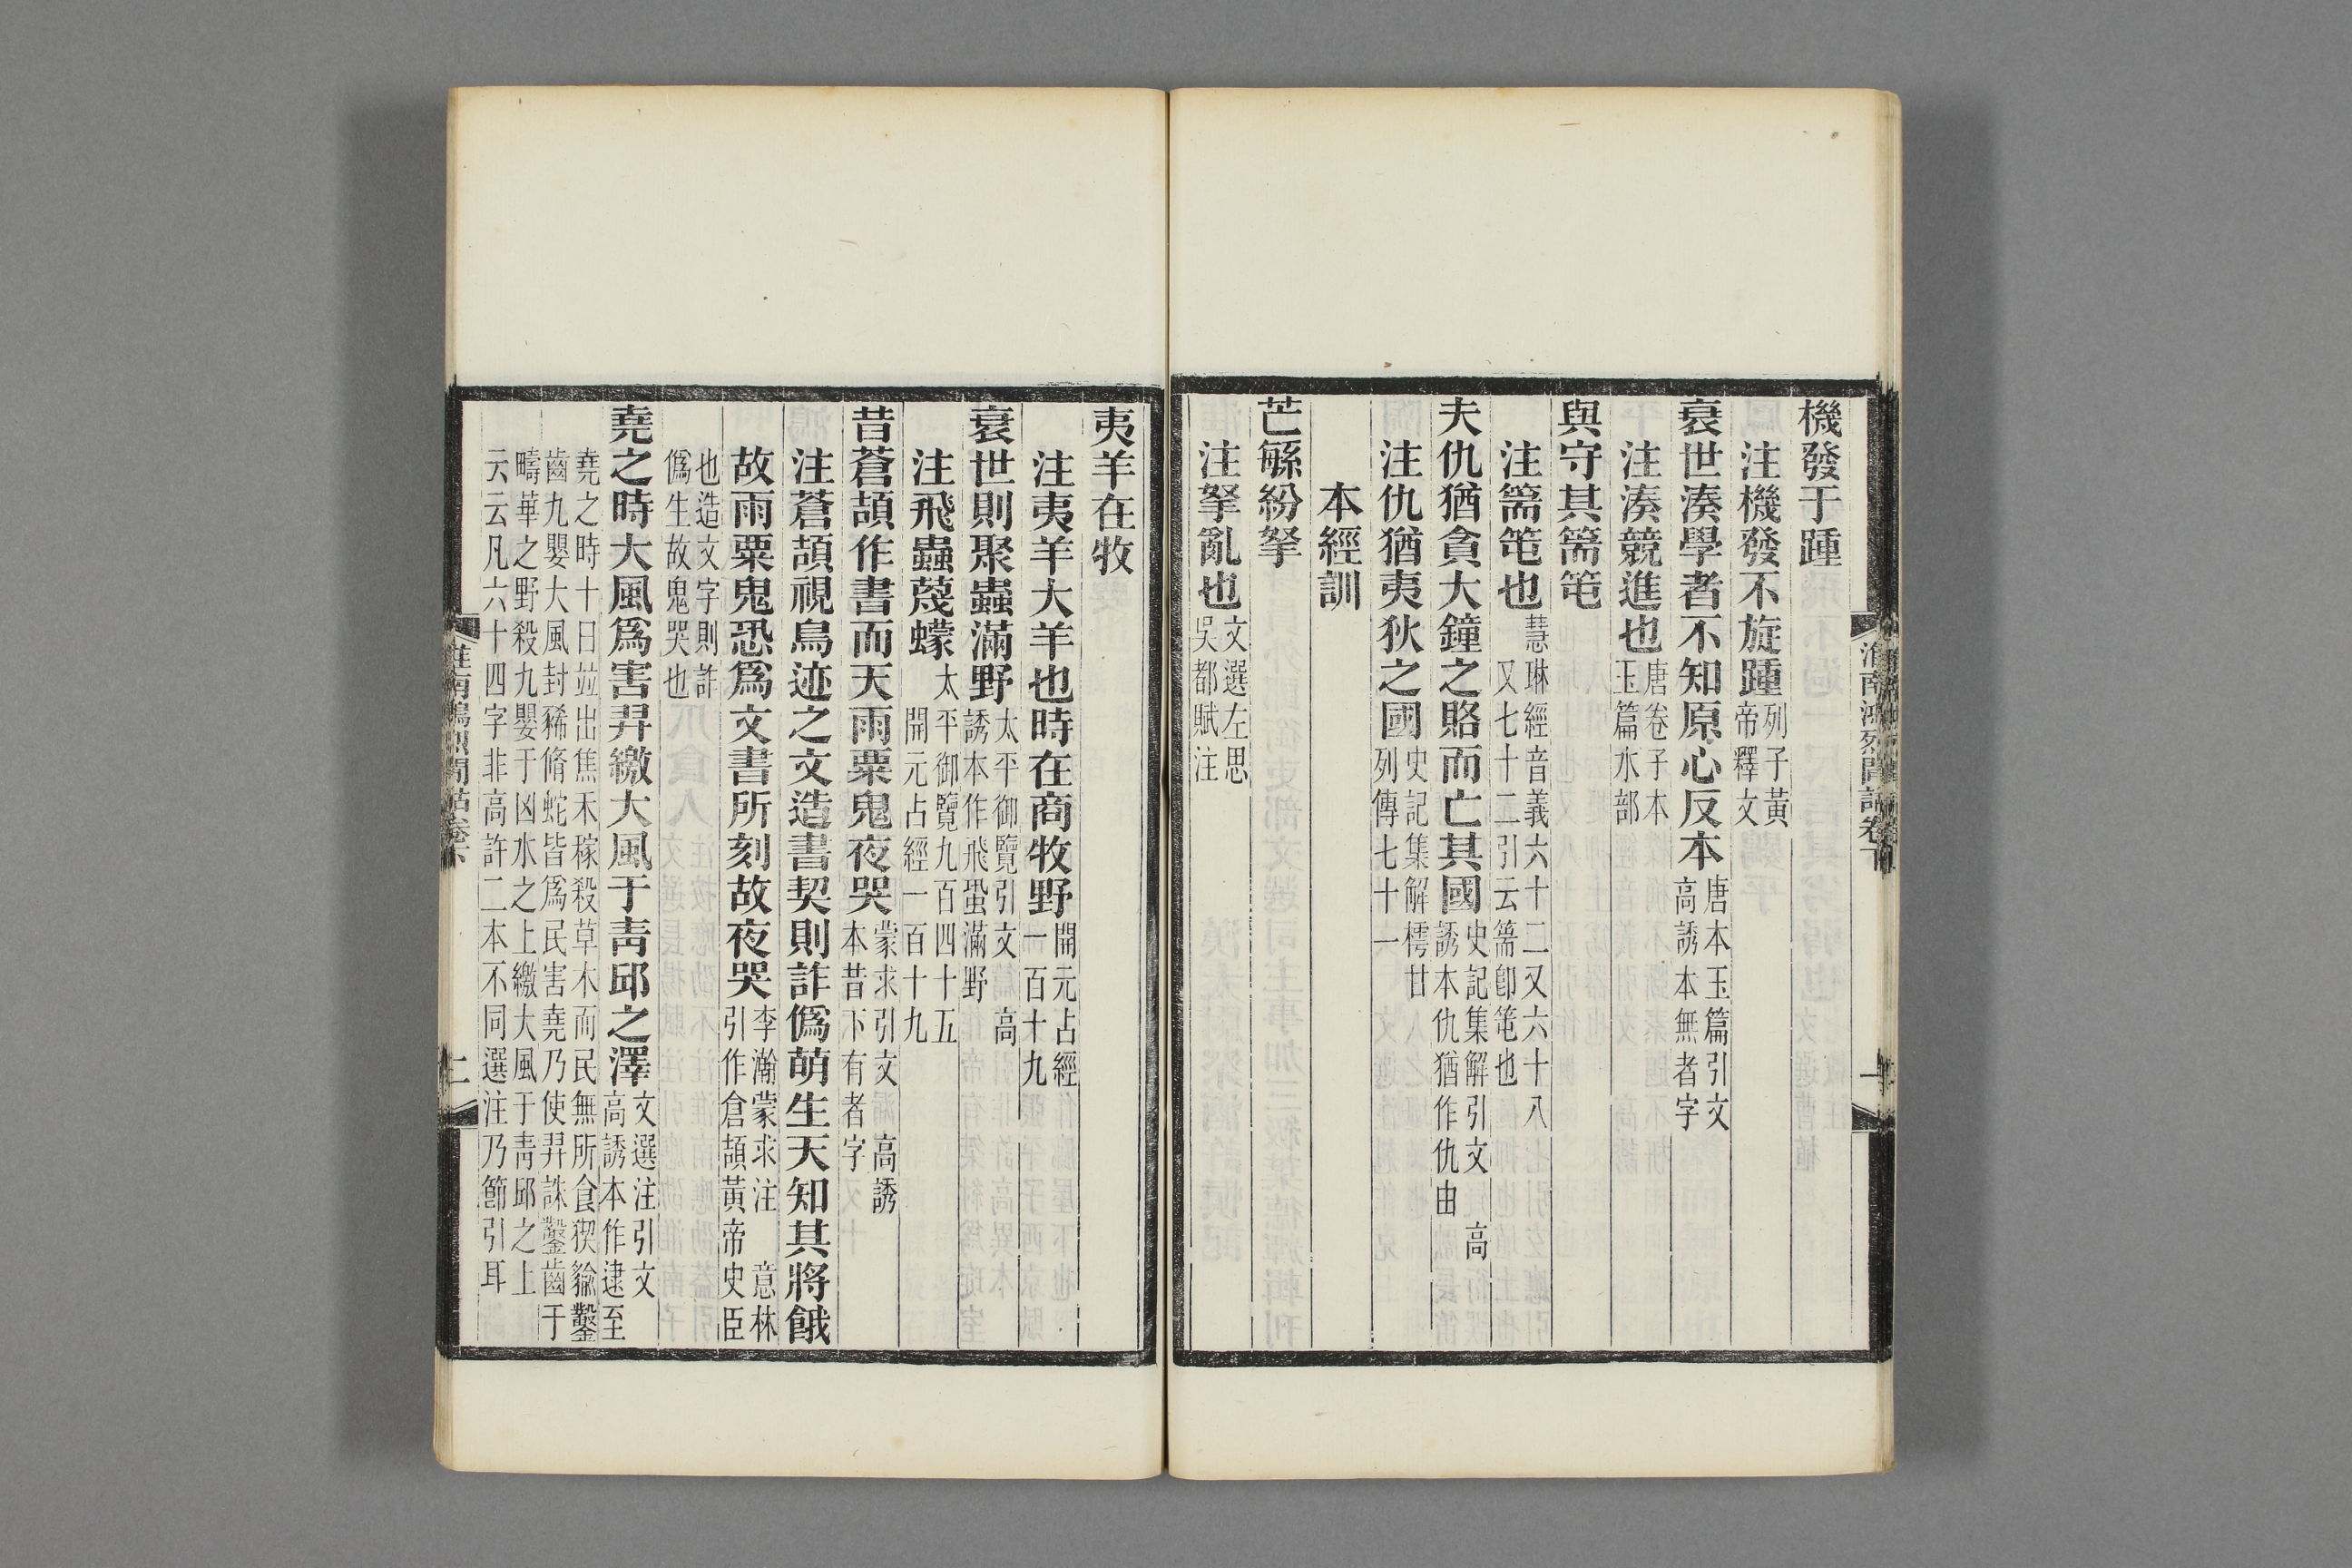 機發于踵
注機發不旋踵列子黃帝釋文
衰世湊學者不知原心反本唐本玉篇引文高誘本無者字
注湊競進也唐卷子本玉篇水部
與守其篅䇪
注篅䇪也慧琳經音義六十二又六十八又七十二引云篅卽䇪也
夫仇猶貪大鐘之賂而亡其國史記集解引文高誘本仇猶作仇由
注仇猶夷狄之國史記集解樗甘列傳七十一
本經訓
芒緐紛挐
注挐亂也文選左思吳都賦注
淮南鴻烈閒詁卷下
夷羊在牧
注夷羊大羊也時在商牧野開元占經一百十九
衰世則聚蟲滿野太平御覽引文高誘本作飛蛩滿野
注飛蟲蔑蠓太平御覽九百四十五開元占經一百十九
昔蒼頡作書而天雨粟鬼夜哭蒙求引文高誘本昔下有者字
注蒼頡視鳥迹之文造書契則詐僞萌生天知其將餓
故雨粟鬼恐爲文書所刻故夜哭李瀚蒙求注意林引作倉頡黃帝史臣
也造文字則詐僞生故鬼哭也
堯之時大風爲害羿繳大風于靑邱之澤文選注引文高誘本作逮至
堯之時十日竝出焦禾稼殺草木而民無所食猰貐鑿
齒九嬰大風封豨脩蛇皆爲民害堯乃使羿誅鑿齒于
疇華之野殺九嬰于凶水之上繳大風于靑邱之上
云云凡六十四字非高許二本不同選注乃節引耳
淮南鴻烈閒詁卷下
二